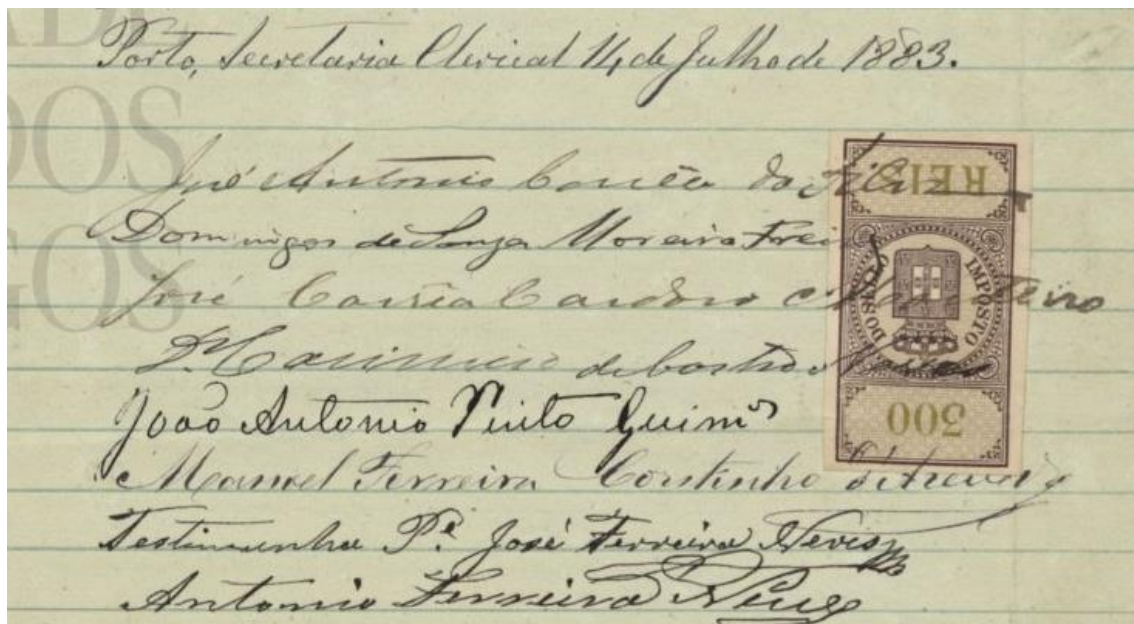 Porto, Secretaria Clerical 14 de Julho de 1883.
José Antonio Corrêa da Silva
Domingos de Souza Moreira Freire
José Corrêa Cardoso Monteiro
Casimiro de Castro Neves
João Antonio Pinto Guim.es
Manuel Ferreira Coutinho d'Azevedo
Testimunha P.e José Ferreira Neves
Antonio Ferreira Neves
REIS
IMPOSTO DO SELLO
500